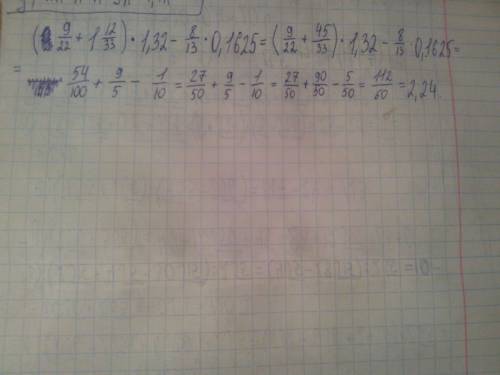 ( 9/22 + 1 12/33 ) · 1,32 - 8/13 · 0,1625 = ( 9/22 + 45/33 ) · 1,32 - 8/13 · 0,1625 =
= 54/100 + 9/5 - 1/10 = 27/50 + 9/5 - 1/10 = 27/50 + 90/50 - 5/50 = 112/50 = 2,24